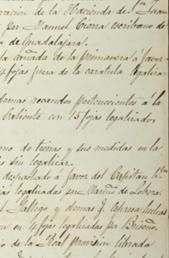 ración de la Hacienda de S. Juan
por Manuel Cierra escribano de
de Guadalajara.
la cuñada de la primavera à favor
fojas fuera de la caratula
demas recaudos pertenecientes à la
Valiente con 15 fojas legalizados
de tierras y sus medidas en la
sin legalizar.
despachado à favor del Capitan
legalizadas por Mariño de Lobera
Gallego, y demas
en 4 fojas legalizadas por Briseño.
de la Real provision librada